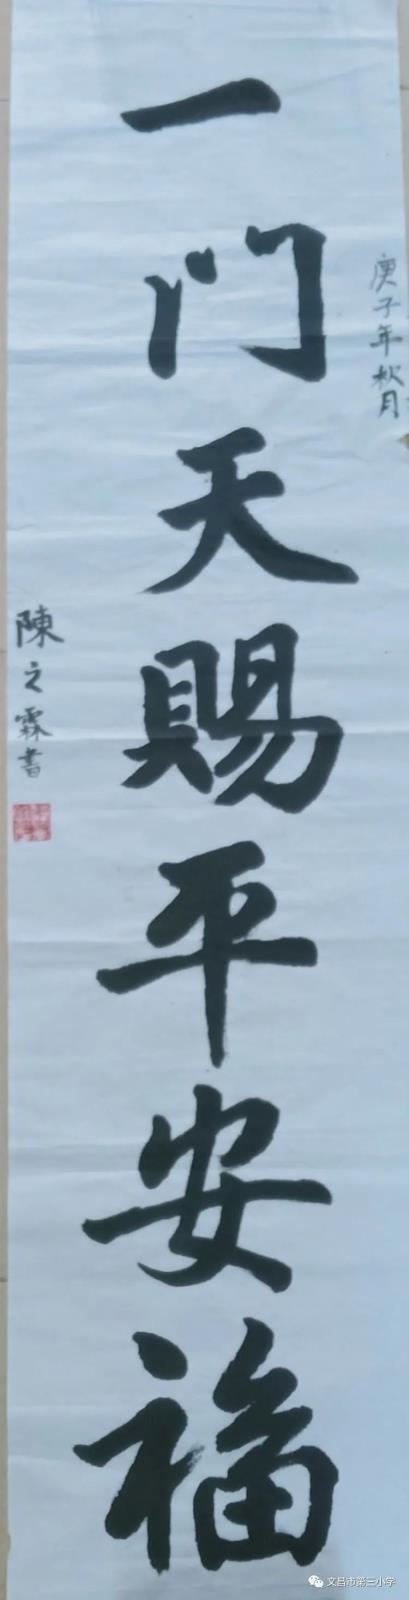 庚子年秋月
一门天赐平安福
陳之霖書
文昌市第三小学